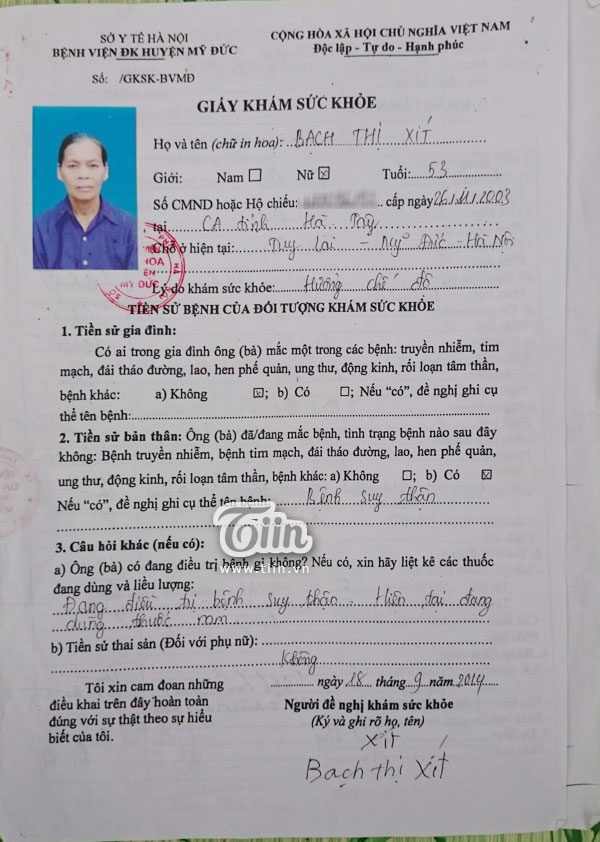 SỞ Y TẾ HÀ NỘI
BỆNH VIỆN ĐK HUYỆN MỸ ĐỨC
CỘNG HÒA XÃ HỘI CHỦ NGHĨA VIỆT NAM
Độc lập - Tự do - Hạnh phúc
Số: /GKSK-BVMĐ
GIẤY KHÁM SỨC KHỎE
Họ và tên (chữ in hoa): BẠCH THỊ XÍT
Giới: Nam ☐ Nữ ☒ Tuổi: 53
Số CMND hoặc Hộ chiếu: cấp ngày 26/11/2003
tại CA tỉnh Hà Tây
Chỗ ở hiện tại: Duy Lai - Mỹ Đức - Hà Nội
Lý do khám sức khỏe: Hưởng chế độ
TIỀN SỬ BỆNH CỦA ĐỐI TƯỢNG KHÁM SỨC KHỎE
1. Tiền sử gia đình:
Có ai trong gia đình ông (bà) mắc một trong các bệnh: truyền nhiễm, tim
mạch, đái tháo đường, lao, hen phế quản, ung thư, động kinh, rối loạn tâm thần,
bệnh khác: a) Không ☒; b) Có ☐; Nếu “có”, đề nghị ghi cụ
thể tên bệnh:
2. Tiền sử bản thân: Ông (bà) đã/đang mắc bệnh, tình trạng bệnh nào sau đây
không: Bệnh truyền nhiễm, bệnh tim mạch, đái tháo đường, lao, hen phế quản,
ung thư, động kinh, rối loạn tâm thần, bệnh khác: a) Không ☐; b) Có ☒
Nếu “có”, đề nghị ghi cụ thể tên bệnh: Bệnh suy thận
Tiin
www.tiin.vn
3. Câu hỏi khác (nếu có):
a) Ông (bà) có đang điều trị bệnh gì không? Nếu có, xin hãy liệt kê các thuốc
đang dùng và liều lượng:
Đang điều trị bệnh suy thận. Hiện tại đang
dùng thuốc nam
b) Tiền sử thai sản (Đối với phụ nữ):
Không
Tôi xin cam đoan những
điều khai trên đây hoàn toàn
đúng với sự thật theo sự hiểu
biết của tôi.
ngày 18 tháng 9 năm 2014
Người đề nghị khám sức khỏe
(Ký và ghi rõ họ, tên)
Xít
Bạch thị Xít